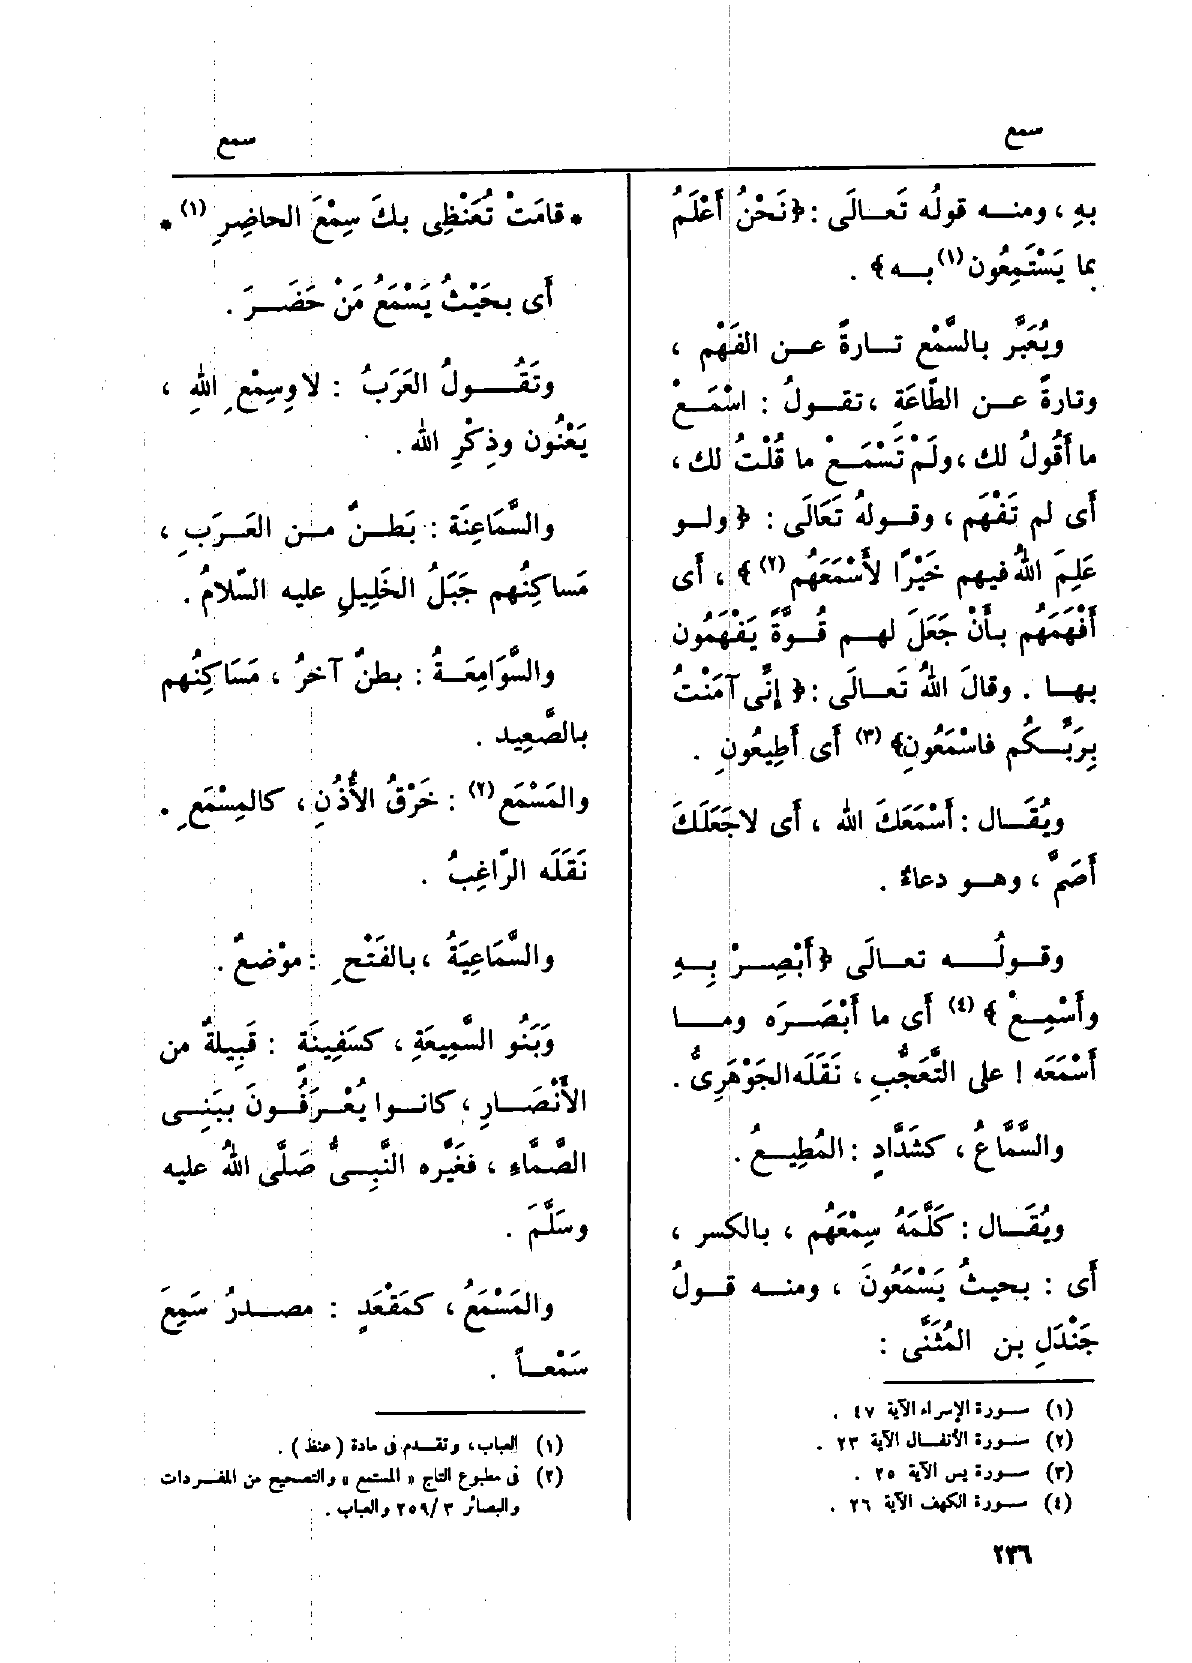 سمع
سمع
بهِ ، ومنـــه قولُه تَعــالَى : ﴿نَحْنُ أَعْلَمُ
بما يَسْتَمِعُون (١) بـــه﴾ .
ويُعَبَّر بالسَّمْع تــارةً عــن الفَهْم ،
وتارةً عــن الطَّاعَةِ ، تقــولُ : اسْمَــعْ
ما أَقُولُ لك ، ولَمْ تَسْمَــعْ ما قُلْتُ لك ،
أَى لم تَفْهَم ، وقــولهُ تَعَالَى : ﴿ ولــو
عَلِمَ اللهُ فيهم خَيْرًا لأَسْمَعَهُم (٢) ﴾ ، أَى
أَفْهَمَهُم بــأَنْ جَعَلَ لهــم قُــوَّةً يَفْهَمُون
بهــا . وقالَ اللهُ تَعــالَى : ﴿ إِنَّى آمَنْتُ
بِرَبِّــكُم فاسْمَعُونِ﴾ (٣) أَى أَطِيعُونِ .
ويُقَــال : أَسْمَعَكَ الله ، أَى لاجَعَلَكَ
أَصَمَّ ، وهــو دعاءٌ .
وقــولُـــه تعــالَى ﴿ أَبْصِــرْ بِــهِ
وأَسْمِــعْ ﴾ (٤) أَى ما أَبْصَــرَه ومــا
أَسْمَعَه ! على التَّعَجُّبِ ، نَقَلَه الجَوْهَرِىُّ .
والسَّمَّاعُ ، كشَدَّادٍ : المُطِيــعُ .
ويُقَــال : كَلَّمَهُ سِمْعَهُم ، بالكسر ،
أَى : بحيثُ يَسْمَعُونَ ، ومنــه قــولُ
جَنْدَلِ بن المُثَنَّى :
(١) ســورة الإسراء الآية ٤٧ .
(٢) ســورة الأنفــال الآية ٢٣ .
(٣) ســورة يس الآية ٢٥ .
(٤) ســورة الكهف الآية ٢٦ .
* قامَتْ تُعَنْظِى بكَ سِمْعَ الحاضِرِ (١) *
أَى بحَيْثُ يَسْمَعُ مَنْ حَضَــرَ .
وتَقُــــولُ العَرَبُ : لا وسِمْعِ اللهِ ،
يَعْنُون وذِكْرِ الله .
والسَّمَاعِنَة : بَطــنٌ مــن العَــرَبِ ،
مَساكِنُهم جَبَلُ الخَلِيلِ عليه السَّلامُ .
والسَّوَامِعَــةُ : بطنٌ آخرُ ، مَسَاكِنُهم
بالصَّعِيد .
والمَسْمَع (٢) : خَرْقُ الأُذُنِ ، كالمِسْمَعِ .
نَقَلَه الرّاغِبُ .
والسَّمَاعِيَةُ ، بالفَتْحِ : موْضعٌ .
وَبَنُو السَّمِيعَةِ ، كسَفِينَةٍ : قَبِيلةٌ من
الأَنْصَــارِ ، كانــوا يُعْــرَفُــونَ ببَنِــى
الصَّمَّاءِ ، فغَيَّره النَّبِــىُّ صَلَّى اللهُ عليه
وسَلَّمَ .
والمَسْمَعُ ، كمَقْعَدٍ : مصــدرُ سَمِعَ
سَمْعــاً .
(١) العباب، وتقــدم فى مادة (عنظ) .
(٢) فى مطبوع التاج « المستمع » والتصحيح من المفــردات
والبصائر ٣ /٢٥٩ والعباب .
٢٣٦